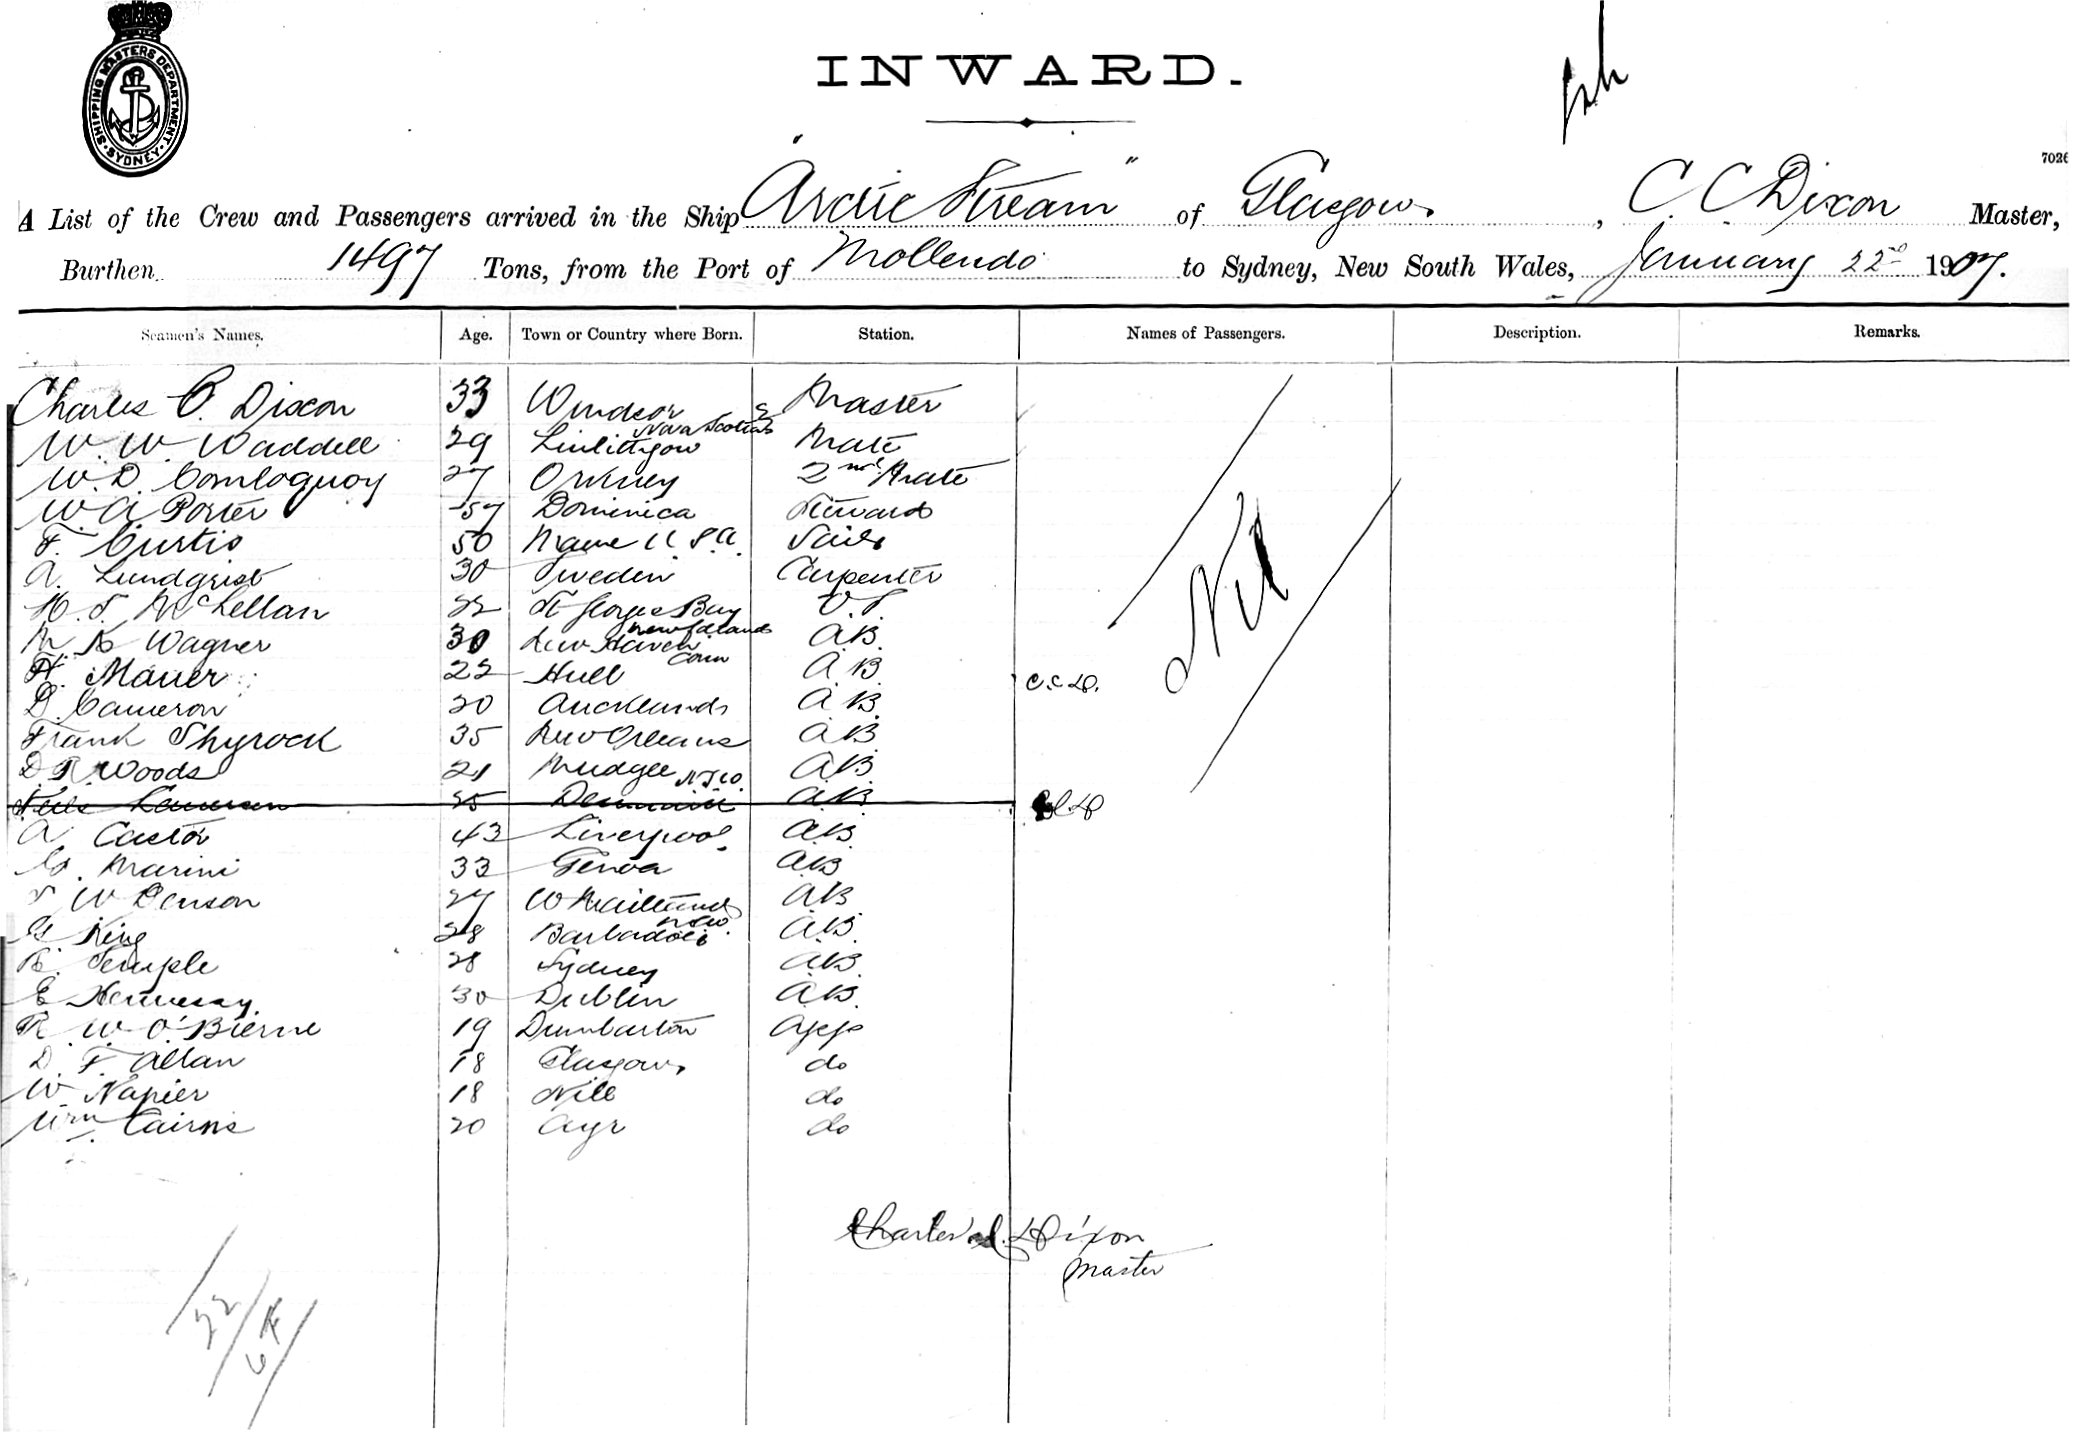 SHIPPING MASTERS DEPARTMENT
SYDNEY
INWARD.
7026
A List of the Crew and Passengers arrived in the Ship "Arctic Stream" of Glasgow, C. C. Dixon Master,
Burthen 1497 Tons, from the Port of Mollendo to Sydney, New South Wales, January 22nd 1907.
Seamen's Names. Age. Town or Country where Born. Station. Names of Passengers. Description. Remarks.
Charles C. Dixon 33 Windsor Nova Scotia Master
W. W. Waddell 29 Linlithgow Mate
W. D. Comloquoy 27 Orkney 2nd Mate
W A Porter 57 Dominica Steward
F. Curtis 50 Maine U.S.A. Sails
A. Lundqrist 30 Sweden Carpenter
H. S. McLellan 22 St Georges Bay Newfdland O.S.
M. K Wagner 30 New Haven Conn A.B.
H. Mauer 22 Hull A.B. C.C.D.
D. Cameron 20 Auckland A.B.
Frank Shyrock 35 New Orleans A.B.
D R Woods 21 Mudgee N.S.W. A.B.
25 Denmark A.B.
A. Castor 43 Liverpool A.B.
G. Marini 33 Genoa A.B.
W Denson 27 W Maitland NSW AB
G King 28 Barbadoes A.B.
R. Temple 28 Sydney A.B.
E Hennessy 30 Dublin A.B.
R. W. O'Bierne 19 Dumbarton App
D. F. Allan 18 Glasgow do
W Napier 18 do
Wm Cairns 20 Ayr do
Nil
Charles C. Dixon
Master
22